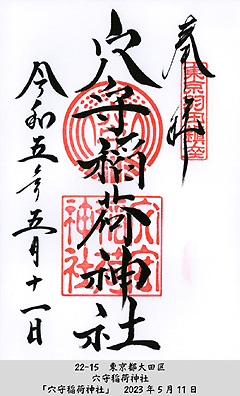 奉拝
穴守稲荷神社
令和五年五月十一日
穴守稲荷神社
22-15 東京都大田区
穴守稲荷神社
「穴守稲荷神社」 2023年5月11日